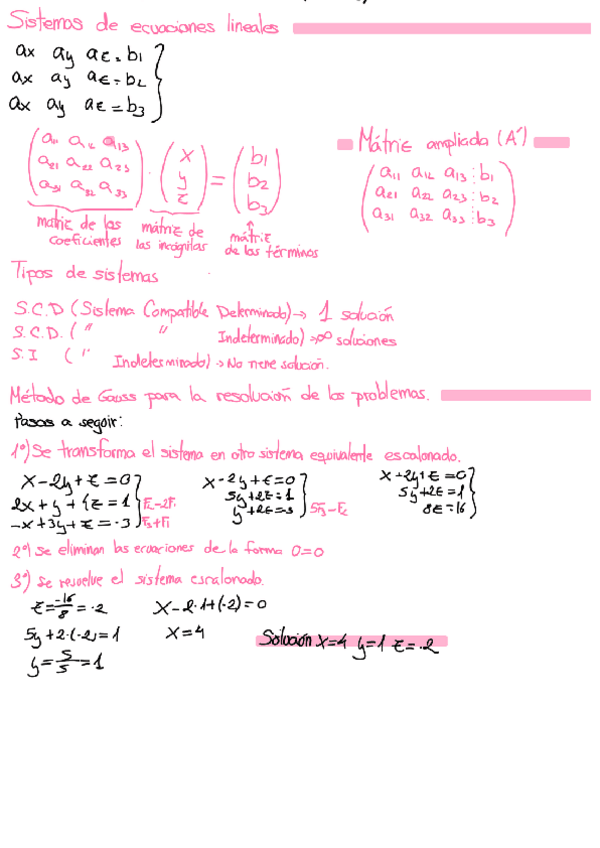 Sistemas de ecuaciones lineales
ax ay az = b1
ax ay az = b2
ax ay az = b3
(a11 a12 a13
a21 a22 a23
a31 a32 a33) · (x
y
z) = (b1
b2
b3)
matriz de los coeficientes
mátriz de las incognitas
mátriz de los términos
Mátriz ampliada (A´)
(a11 a12 a13 : b1
a21 a22 a23 : b2
a31 a32 a33 : b3)
Tipos de sistemas
S.C.D (Sistema Compatible Determinado) → 1 solución
S.C.D. ( " " Indeterminado) → ∞ soluciones
S.I ( " Indeterminado) → No tiene solución.
Método de Gauss para la resolución de los problemas.
Pasos a seguir:
1º) Se transforma el sistema en otro sistema equivalente escalonado.
x - 2y + z = 0
2x + y + 4z = 1 F2 - 2F1
-x + 3y + z = -3 F3 + F1
x - 2y + z = 0
5y + 2z = 1
y + 2z = -3 5F3 - F2
x - 2y + z = 0
5y + 2z = 1
8z = -16
2º) se eliminan las ecuaciones de la forma 0=0
3º) se resuelve el sistema escalonado.
z = -16/8 = -2
x - 2·1 + (-2) = 0
5y + 2·(-2) = 1
x = 4
y = 5/5 = 1
Solución x=4 y=1 z=-2